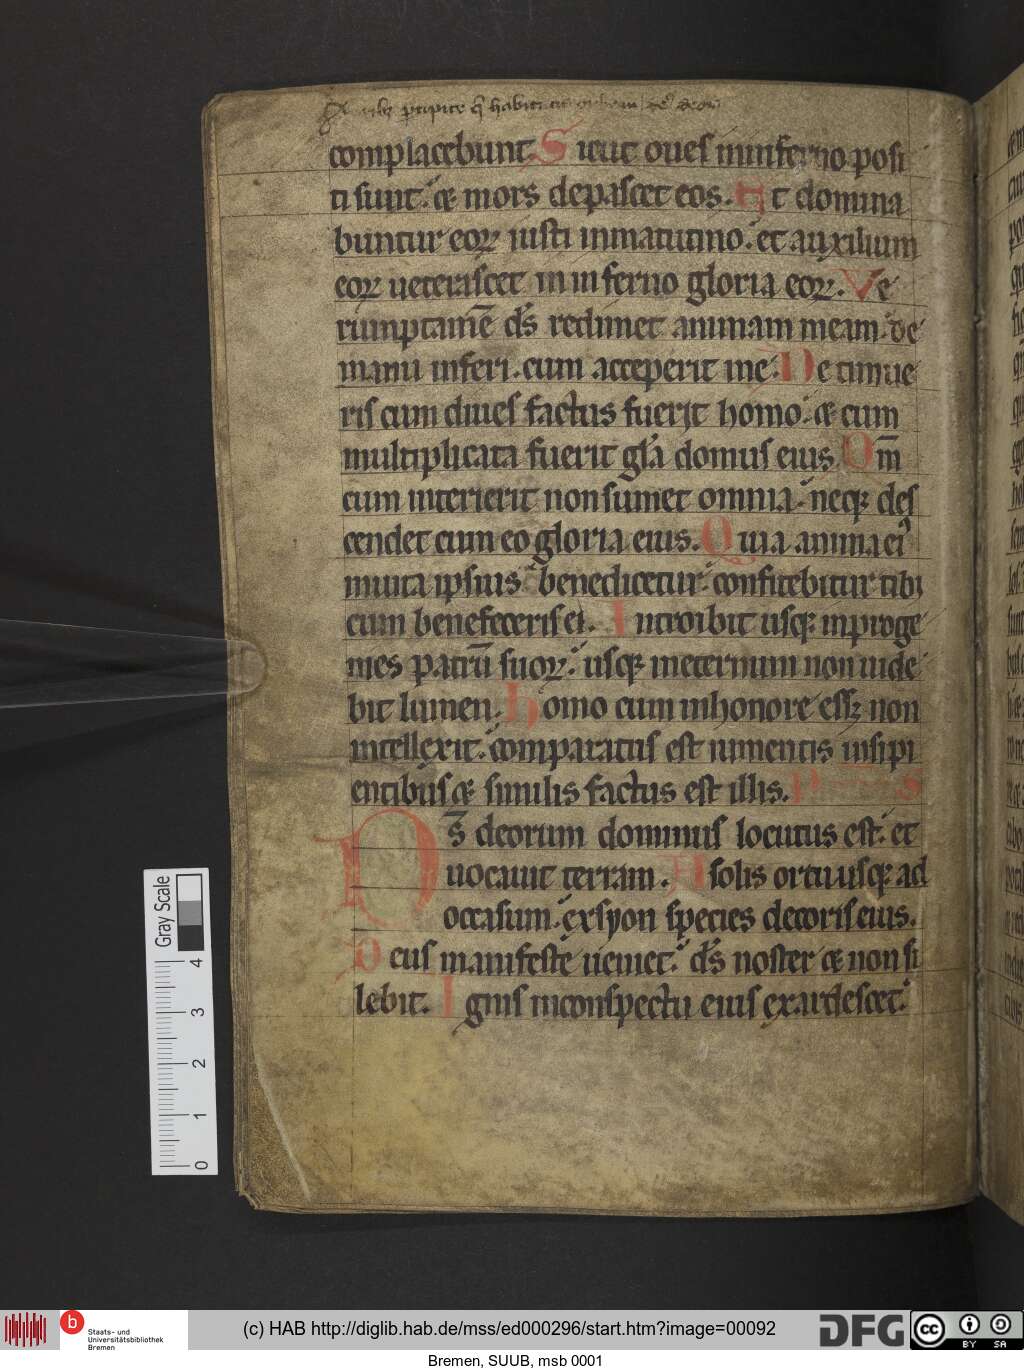 Auribus pcipite q̄ habitatis orbem ds deorum
complacebunt. Sicut oues ininferno posi
ti sunt: & mors depascet eos. Et domina
buntur eoꝝ iusti inmatutino. et auxilium
eoꝝ ueterascet in inferno gloria eoꝝ. Ve
rumptam̄ d̄s redimet animam meam de
manu inferi. cum acceperit me: Ne timue
ris cum diues factus fuerit homo: & cum
multiplicata fuerit gl̄a domus eius. Qm̄
cum interierit non sumet omnia: neqꝫ des
cendet cum eo gloria eius. Quia anima ei᾽
inuita ipsius benedicetur: confitebitur tibi
cum benefeceris ei. Introibit usqꝫ inproge
nies patrū suoꝝ: usqꝫ ineternum non uide
bit lumen. Homo cum inhonore essꝫ non
intellexit: comparatus est iumentis insipi
entibus & similis factus est illis. Ps
D̄s deorum dominus locutus est: et
uocauit terram. A solis ortu usqꝫ ad
occasum: exsyon species decoris eius.
Deus manifeste ueniet: d̄s noster & non si
lebit. Ignis inconspectu eius exardescet:
Gray Scale
4
3
2
1
0
b
Staats- und
Universitätsbibliothek
Bremen
(c) HAB http://diglib.hab.de/mss/ed000296/start.htm?image=00092
DFG
cc
BY SA
Bremen, SUUB, msb 0001